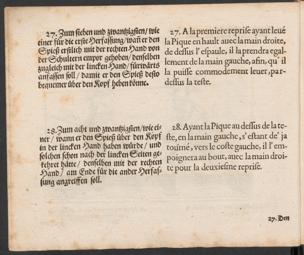 27. Zum sieben und zwantzigsten / wie
einer für die erste Herfassung / wañ er den
Spieß erstlich mit der rechten Hand von
der Schultern empor gehoben / denselben
zugleich mit der lincken Hand / fürwärts
anfassen soll / damit er den Spieß desto
bequemer über den Kopf heben könne.
28. Zum acht und zwantzigsten / wie ei-
ner / wann er den Spieß über den Kopf
in der lincken Hand haben würde / und
solchen schon nach der lincken Seiten ge-
kehret hätte / denselben mit der rechten
Hand / am Ende für die ander Herfas-
sung angreiffen soll.
27. A la premiere reprise ayant leué
la Pique en hault auec la main droite,
de dessus l'espaule, il la prendra egal-
lement de la main gauche, afin, qu'il
la puisse commodement leuer, par-
dessus la teste.
28. Ayant la Pique au dessus de la te-
ste, en la main gauche, s'estant de' ja
tourné, vers le coste gauche, il l'em-
poignera au bout, auec la main droi-
te pour la deuxiesme reprise.
27. Den